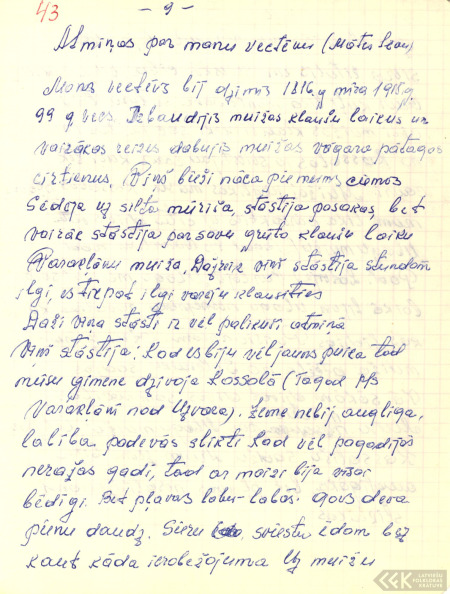 43
- 9 -
Atmiņas par manu vectēvu (Mātes tēvu)
Mans vectēvs bij dzimis 1816.g mira 1915.g.
99 g vecs Izbaudījis muižas klaušu laikus un
vairākas reizes dabujis muižas vagara pātagas
cirtienus. Viņš bieži nāca pie mums ciemos
Sēdēja uz silta mūrīša, stāstīja pasakas, bet
vairāk stāstīja par savu grūto klaušu laiku
Varakļānu muižā, Dažreiz viņš stāstīja stundām
ilgi, es tikpat ilgi varēju klausīties
Daži viņa stāsti ir vēl palikuši atmiņā
Viņš stāstīja; kad es biju vēl jauns puika tad
mūsu ģimene dzīvoja Kossolā (Tagad MS
Varakļāni nod Uzvara). Zeme nebij auglīga,
labība padevās slikti kad vēl pagadījās
neražas gadi, tad ar maizi bija visai
bēdīgi. Bet pļavas labu-labās. Govs deva
pienu daudz. Sieru, sviestu ēdām bez
kaut kāda ierobežojuma Uz muižu
LATVIEŠU
FOLKLORAS
KRĀTUVE